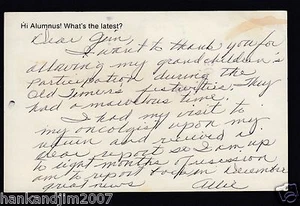 Hi Alumnus! What's the latest?
Dear Jim,
I want to thank you for
allowing my grandchildren's
participation during the
Old Timers festivities. They
had a marvelous time.
I had my visit to
my oncologist upon my
return and received a
clear report so I am up
to eight months of
am to report again December
great news
Allie
hankandjim2007